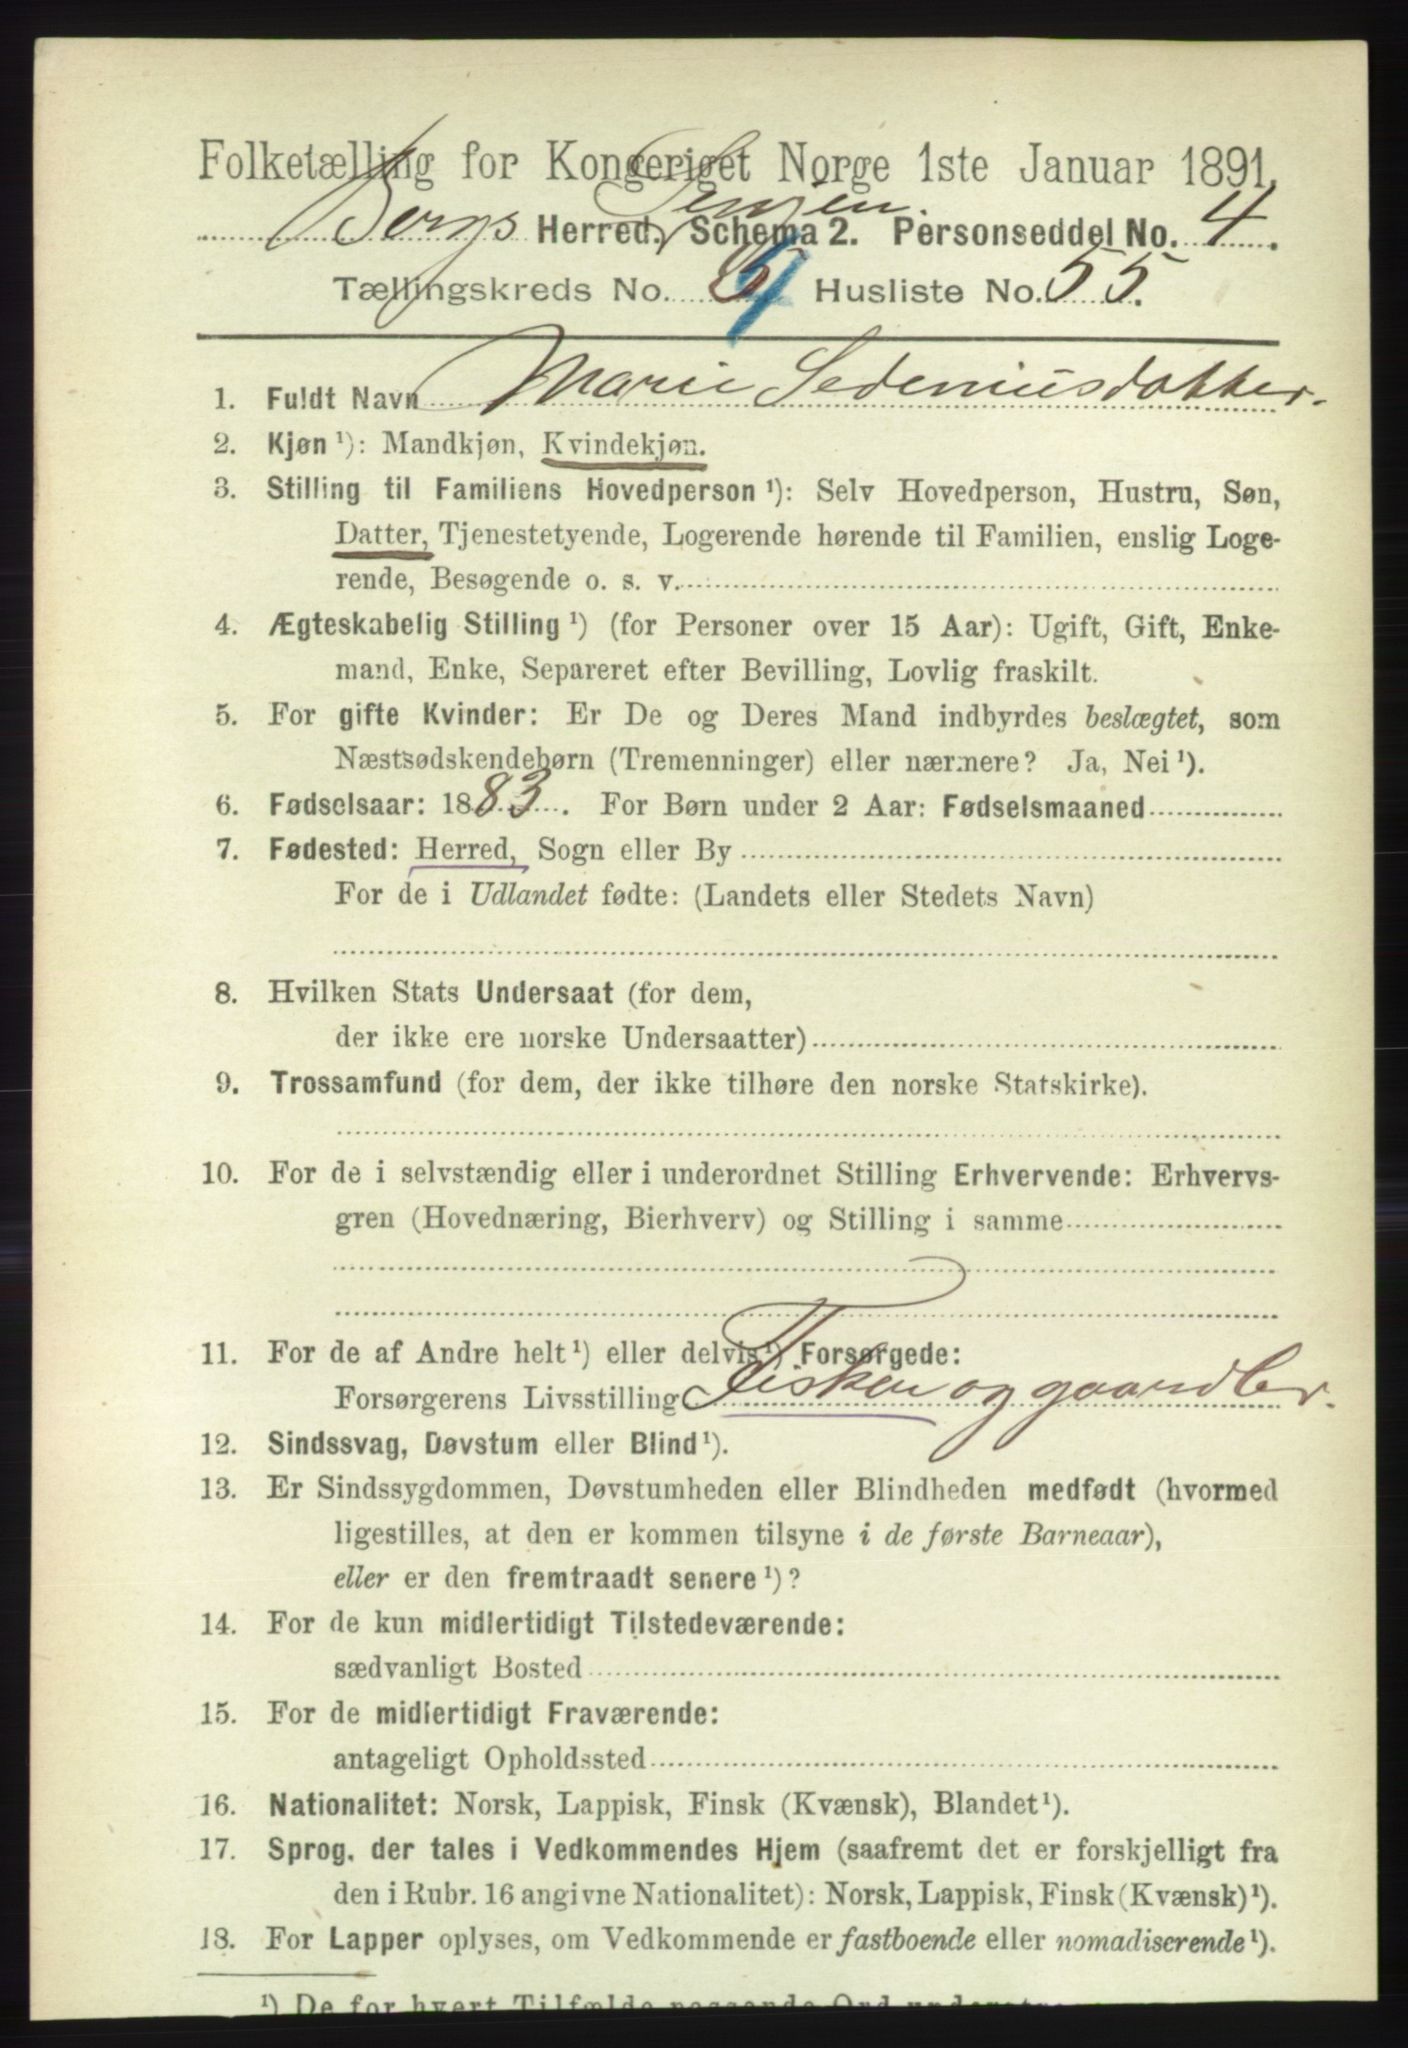 Folketælling for Kongeriget Norge 1ste Januar 1891.
Bergs Herred, Senjen. Schema 2. Personseddel No. 4.
Tællingskreds No. Husliste No. 55.
1. Fuldt Navn Marie Sedeniusdatter.
2. Kjøn ¹): Mandkjøn, Kvindekjøn.
3. Stilling til Familiens Hovedperson ¹): Selv Hovedperson, Hustru, Søn,
Datter, Tjenestetyende, Logerende hørende til Familien, enslig Loge-
rende, Besøgende o. s. v.
4. Ægteskabelig Stilling ¹) (for Personer over 15 Aar): Ugift, Gift, Enke-
mand, Enke, Separeret efter Bevilling, Lovlig fraskilt.
5. For gifte Kvinder: Er De og Deres Mand indbyrdes beslægtet, som
Næstsødskendebørn (Tremenninger) eller nærmere? Ja, Nei ¹).
6. Fødselsaar: 1883. For Børn under 2 Aar: Fødselsmaaned
7. Fødested: Herred, Sogn eller By
For de i Udlandet fødte: (Landets eller Stedets Navn)
8. Hvilken Stats Undersaat (for dem,
der ikke ere norske Undersaatter)
9. Trossamfund (for dem, der ikke tilhøre den norske Statskirke).
10. For de i selvstændig eller i underordnet Stilling Erhvervende: Erhvervs-
gren (Hovednæring, Bierhverv) og Stilling i samme
11. For de af Andre helt ¹) eller delvis ¹) Forsørgede:
Forsørgerens Livsstilling Fisker og gaardbr.
12. Sindssvag, Døvstum eller Blind ¹).
13. Er Sindssygdommen, Døvstumheden eller Blindheden medfødt (hvormed
ligestilles, at den er kommen tilsyne i de første Barneaar),
eller er den fremtraadt senere ¹)?
14. For de kun midlertidigt Tilstedeværende:
sædvanligt Bosted
15. For de midlertidigt Fraværende:
antageligt Opholdssted
16. Nationalitet: Norsk, Lappisk, Finsk (Kvænsk), Blandet ¹).
17. Sprog, der tales i Vedkommendes Hjem (saafremt det er forskjelligt fra
den i Rubr. 16 angivne Nationalitet): Norsk, Lappisk, Finsk (Kvænsk) ¹).
18. For Lapper oplyses, om Vedkommende er fastboende eller nomadiserende ¹).
¹) De for hvert Tilfælde passende Ord